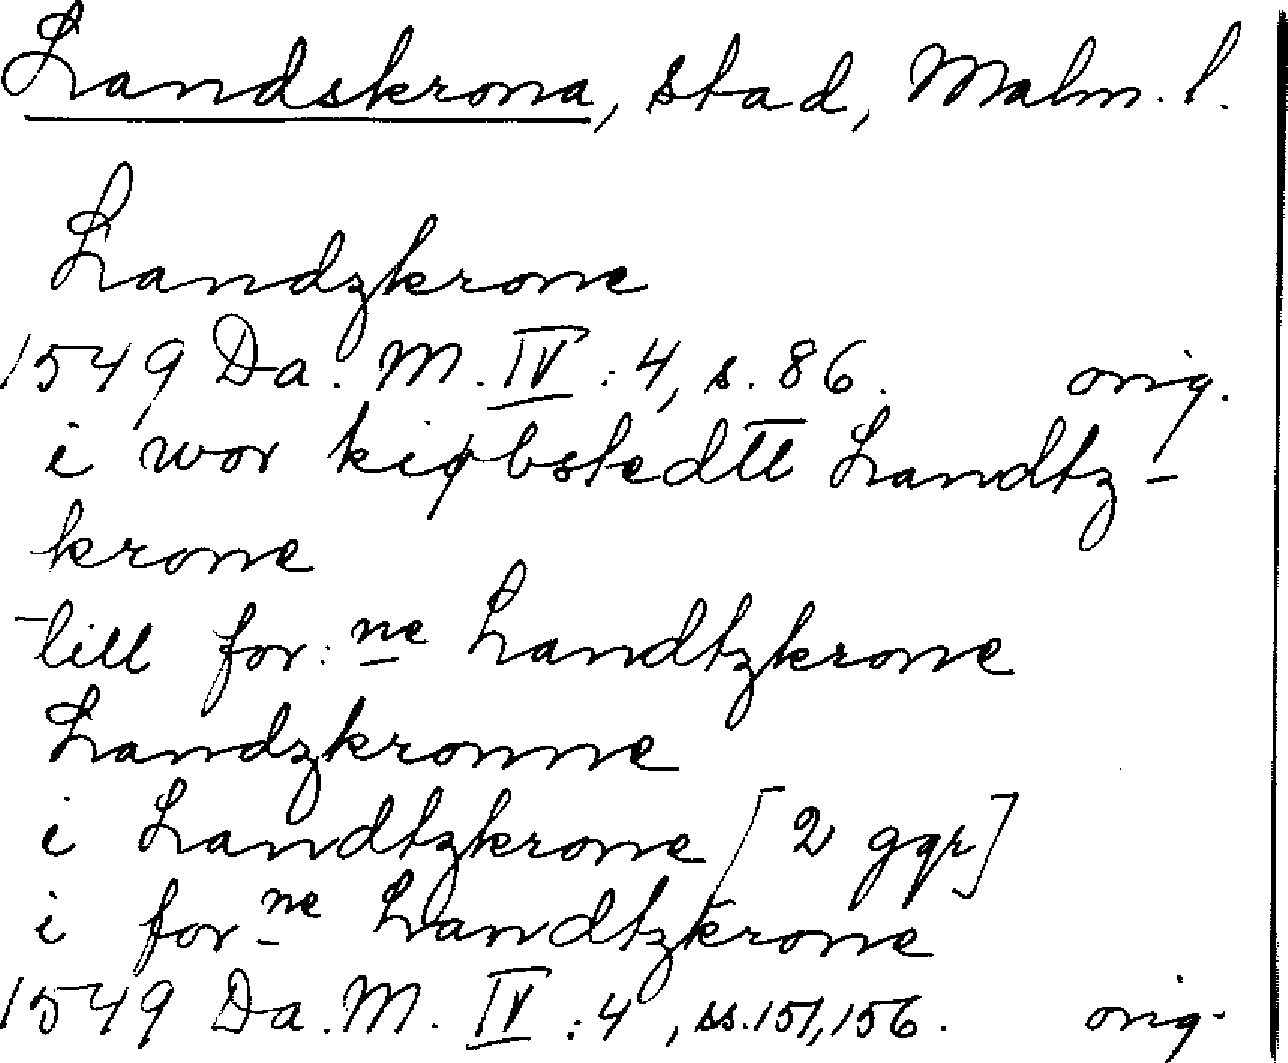 Landskrona, stad, Malm. l.
Landzkrone
1549 Da. M. IV : 4, s. 86. orig.
i wor kiøbstedtt Landtz-
krone
till for: ne Landtzkrone
Landzkronne
i Landtzkrone [2 ggr]
i for ne Landtzkrone
1549 Da. M. IV : 4, ss. 151, 156. orig.